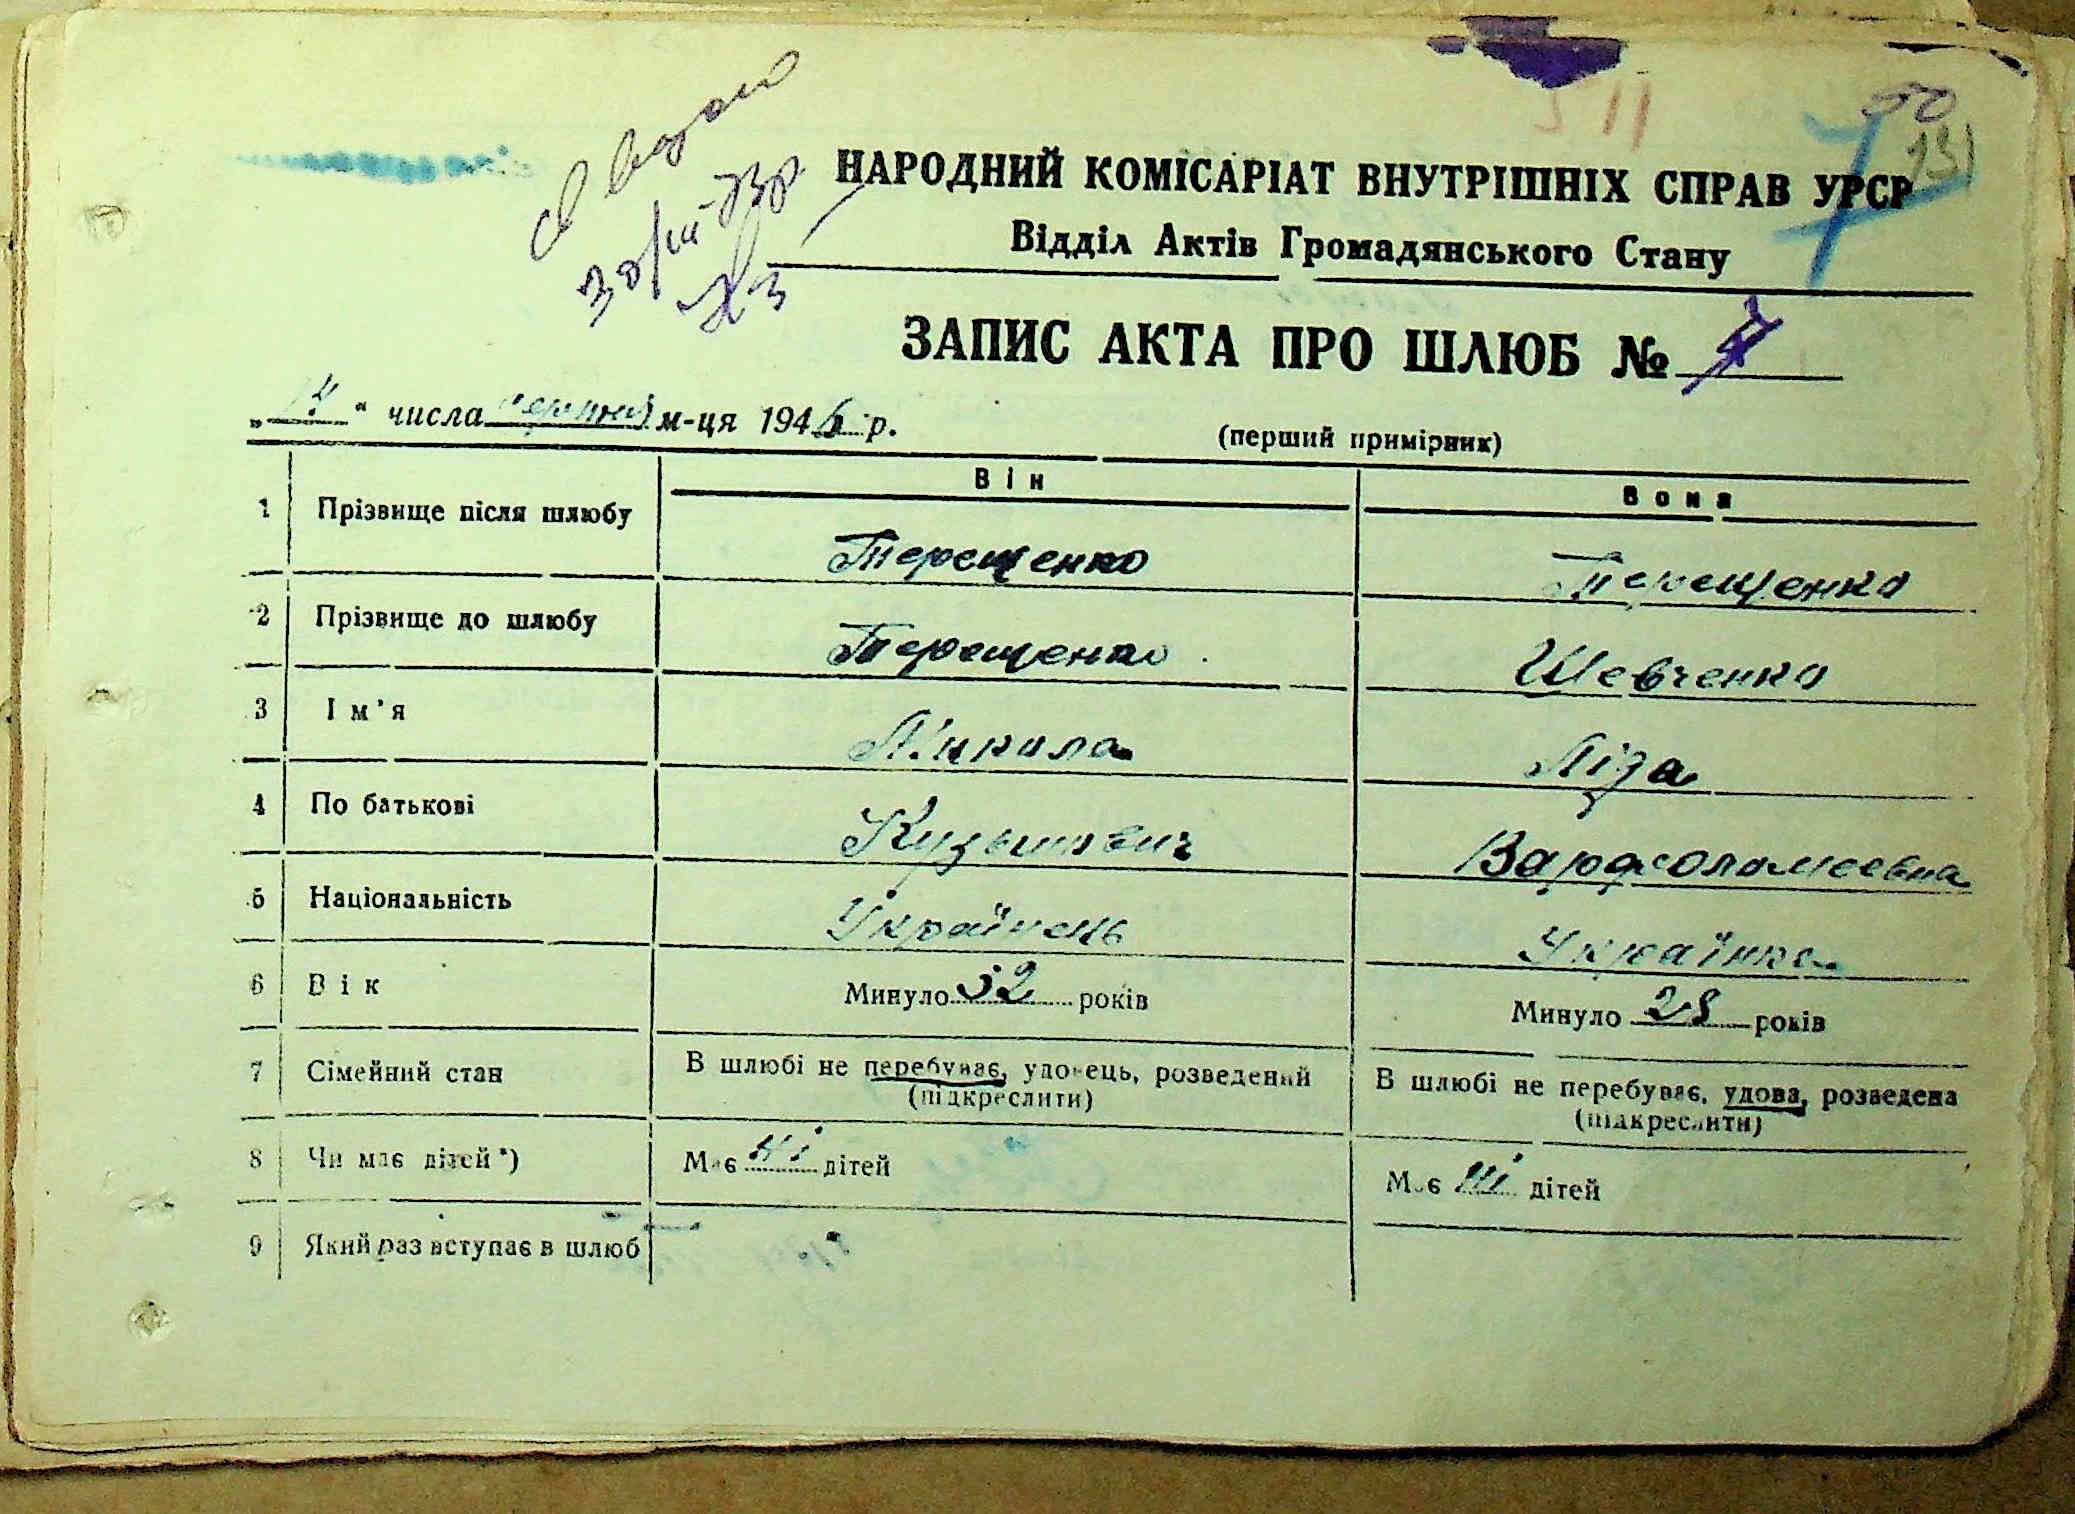 НАРОДНИЙ КОМІСАРІАТ ВНУТРІШНІХ СПРАВ УРСР
Відділ Актів Громадянського Стану
50
131
511
ЗАПИС АКТА ПРО ШЛЮБ № 7
„14“ числа серпня м-ця 1946 р.
(перший примірник)
Він Вона
1 Прізвище після шлюбу Терещенко Терещенко
2 Прізвище до шлюбу Терещенко Шевченко
3 Ім'я Микола Ліда
4 По батькові Кузьмович Варфоломеевна
5 Національність Українець Українка
6 Вік Минуло 32 років Минуло 28 років
7 Сімейний стан В шлюбі не перебуває, удовець, розведений В шлюбі не перебуває, удова, розведена
(підкреслити) (підкреслити)
8 Чи має дітей *) Має ні дітей Має ні дітей
9 Який раз вступає в шлюб